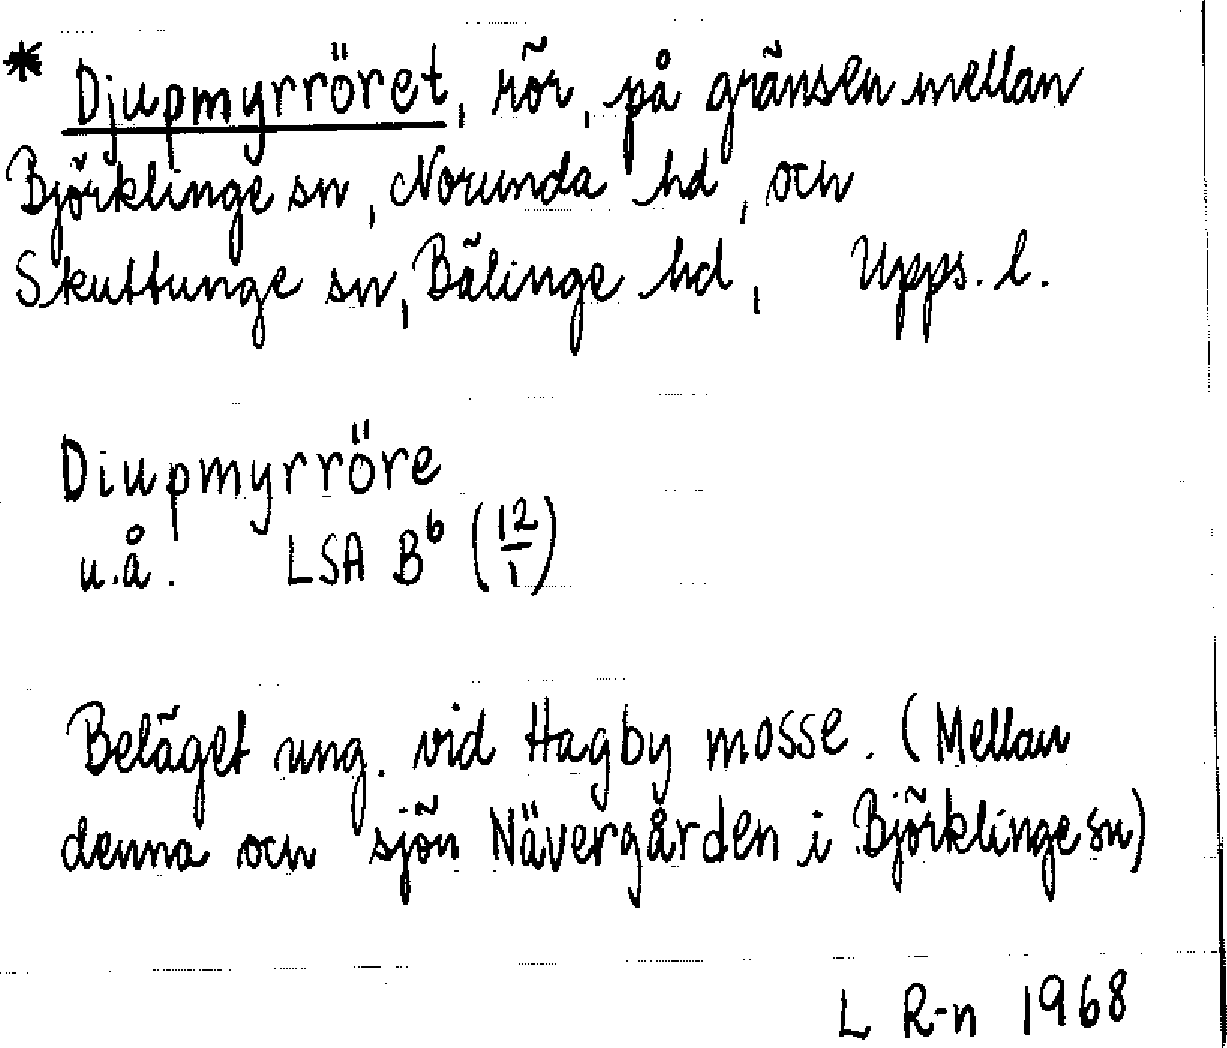 * Djupmyrröret, rör, på gränsen mellan
Björklinge sn, Norunda hd, och
Skuttunge sn, Bälinge hd, Upps. l.
Diupmyrröre
u.å. LSA B⁶ (12/1)
Beläget ung. vid Hagby mosse. (Mellan
denna och sjön Nävergården i Björklinge sn)
L R-n 1968